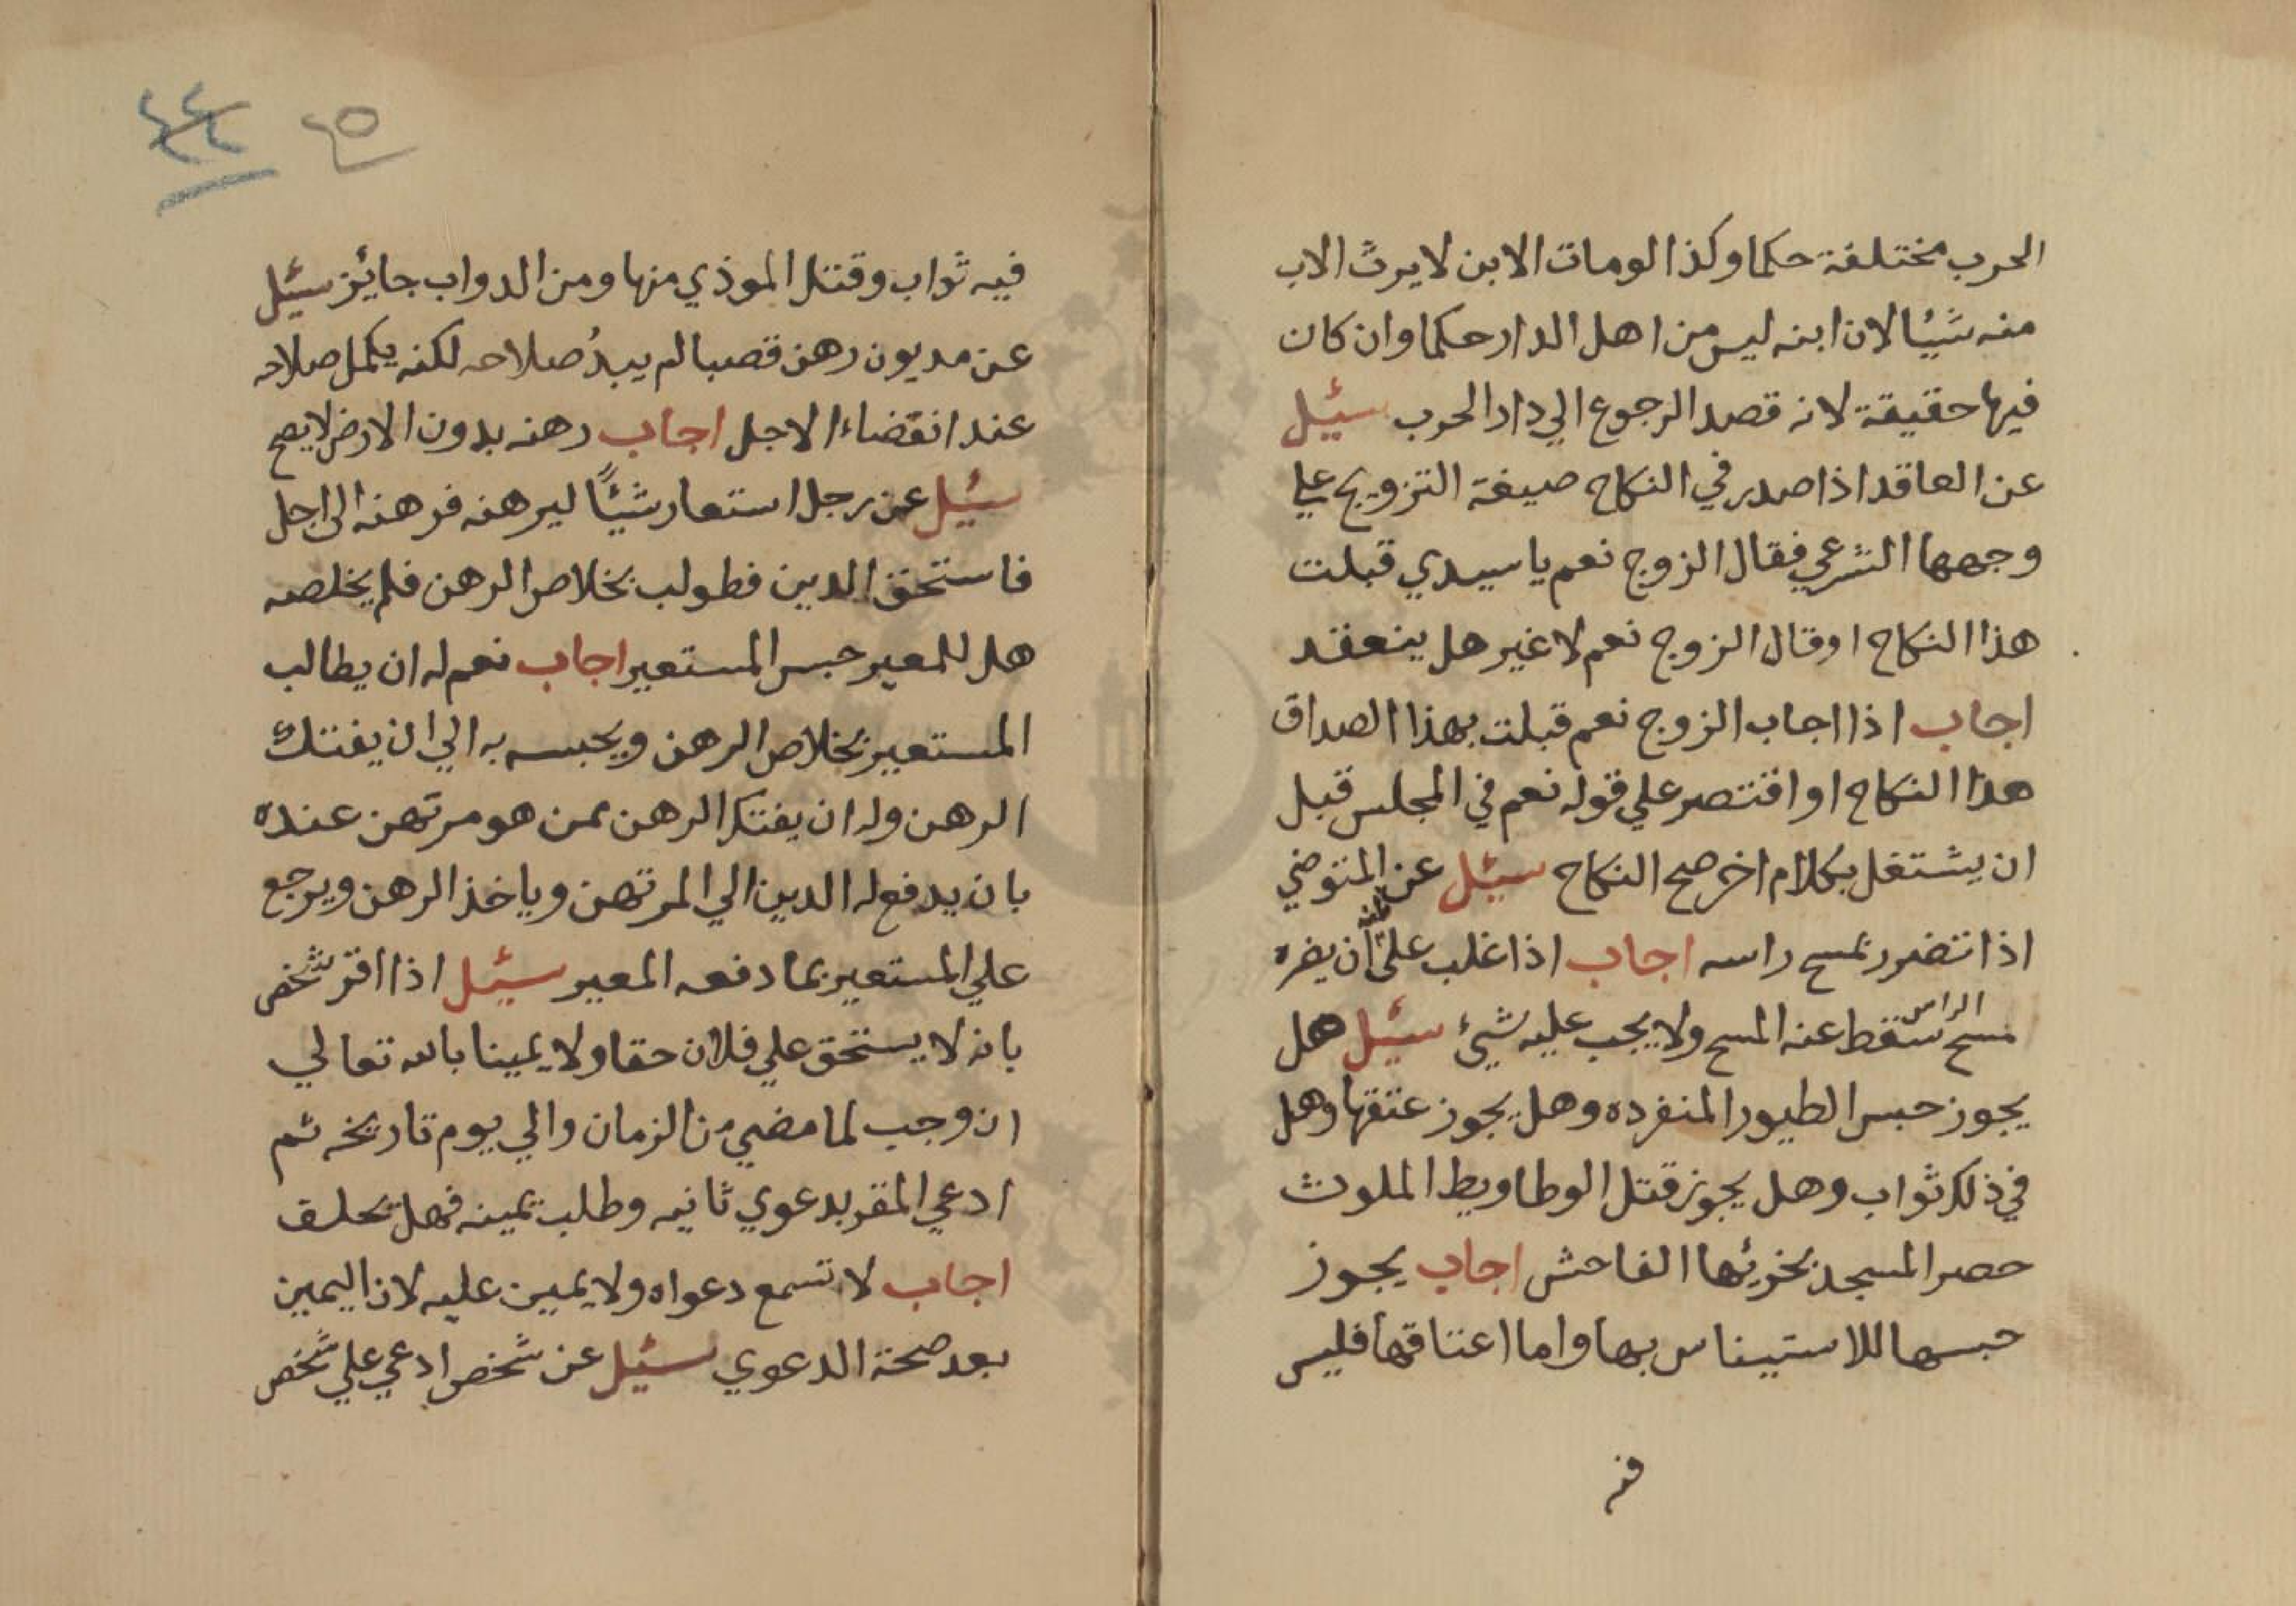 الحرب مختلفة حكما وكذا لومات الابن لا يرث الاب
منه شيئا لان ابنه ليس من اهل الدار حكما وان كان
فيها حقيقة لانه قصد الرجوع الي دار الحرب سئيل
عن العاقد اذا صدر في النكاح صيغة التزويج علي
وجهها الشرعي فقال الزوج نعم يا سيدي قبلت
هذا النكاح او قال الزوج نعم لا غير هل ينعقد
اجاب اذا اجاب الزوج نعم قبلت بهذا الصداق
هذا النكاح او اقتصر علي قوله نعم في المجلس قبل
ان يشتغل بكلام اخر صح النكاح سئيل عن المتوضي
اذا تضرر بمسح راسه اجاب اذا غلب علي ظنه ان يضره
مسح الراس سقط عنه المسح ولا يجب عليه شيئ سئيل هل
يجوز حبس الطيور المنفرده وهل يجوز عتقها وهل
في ذلك ثواب وهل يجوز قتل الوطاويط الملوث
حصر المسجد بخرئها الفاحش اجاب يجوز
حبسها للاستيناس بها واما اعتاقها فليس
فيه
٤٥
٤٤
فيه ثواب وقتل الموذي منها ومن الدواب جائز سئيل
عن مديون رهن قصبا لم يبدُ صلاحه لكنه يكمل صلاحه
عند انقضاء الاجل اجاب رهنه بدون الارض لا يصح
سئيل عن رجل استعار شيئًا ليرهنه فرهنه الى اجل
فاستحق الدين فطولب بخلاص الرهن فلم يخلصه
هل للمعير حبس المستعير اجاب نعم له ان يطالب
المستعير بخلاص الرهن ويحبسه به الي ان يفتك
الرهن وله ان يفتك الرهن ممن هو مرتهن عنده
بان يدفع له الدين الي المرتهن وياخذ الرهن ويرجع
علي المستعير بما دفعه المعير سئيل اذا اقر شخص
بانه لا يستحق علي فلان حقا ولا يمينا بالله تعالي
ان وجب لما مضي من الزمان والي يوم تاريخه ثم
ادعي المقر بدعوي ثانيه وطلب يمينه فهل يحلف
اجاب لا تسمع دعواه ولا يمين عليه لان اليمين
بعد صحة الدعوي سئيل عن شخص ادعي علي شخص